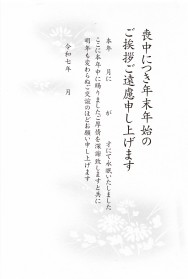 喪中につき年末年始の
ご挨拶ご遠慮申し上げます
本年　月に　　が　　才にて永眠いたしました
ここに本年中に賜りましたご厚情を深謝致しますと共に
明年も変わらぬご交誼のほどお願い申し上げます
令和七年　　月